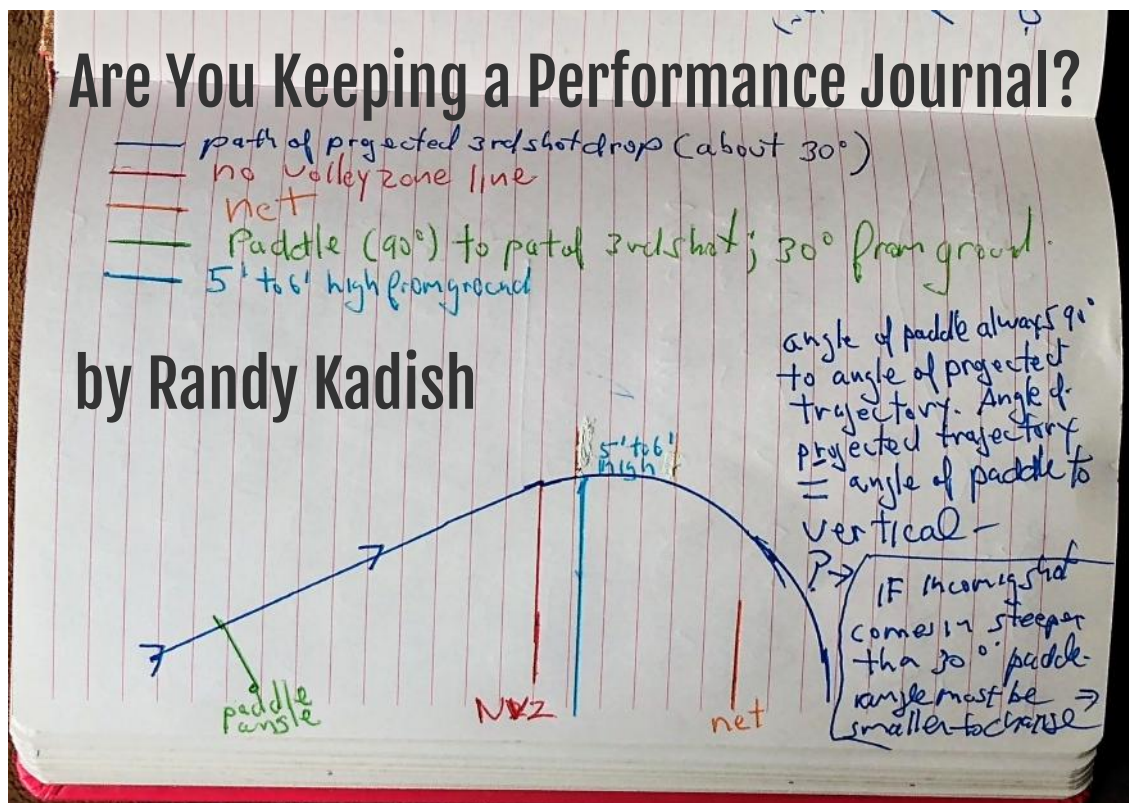 Are You Keeping a Performance Journal?
path of projected 3rd shot drop (about 30°)
no volley zone line
net
Paddle (90°) to pat of 3rd shot; 30° from ground.
5' to 6' high from ground
by Randy Kadish
angle of paddle always 90°
to angle of projected
trajectory. Angle of
projected trajectory
= angle of paddle to
vertical -
? →
IF incomig shot
comes in steeper
tha 30° paddle
angle must be →
smaller to change
5' to 6'
high
paddle
angle
NVZ
net